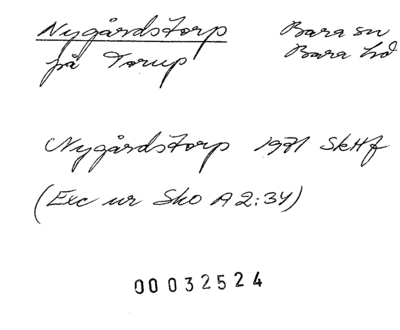 Nygårdstorp Bara sn
på Torup Bara hd
Nygårdstorp 1971 SkHf
(Exc ur Sko A2:34)
00032524